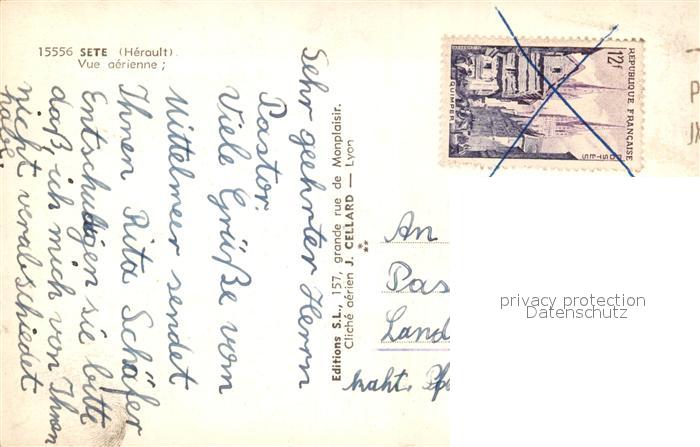 15556 SETE (Hérault).
Vue aérienne ;
Sehr geehrter Herrn
Pastor.
Viele Grüße vom
Mittelmeer sendet
Ihnen Rita Schäfer
Entschuldigen sie bitte
daß, ich mich von Ihnen
nicht verabschiedet
habe.
Editions S.L., 157, grande rue de Monplaisir.
Cliché aérien J. CELLARD — Lyon
**
REPUBLIQUE FRANÇAISE
POSTES
12F
QUIMPER
An
Pas
Land
kath. Pfa
privacy protection
Datenschutz